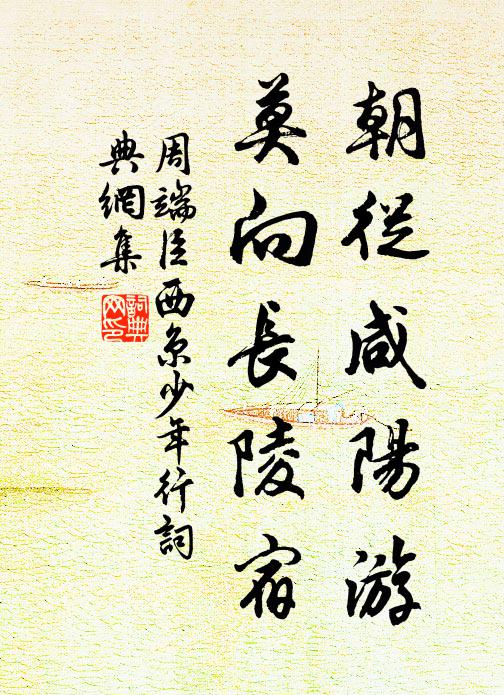 朝從咸陽游
莫向長陵宿
周端臣西京少年行詞
典網集
詞典
网印